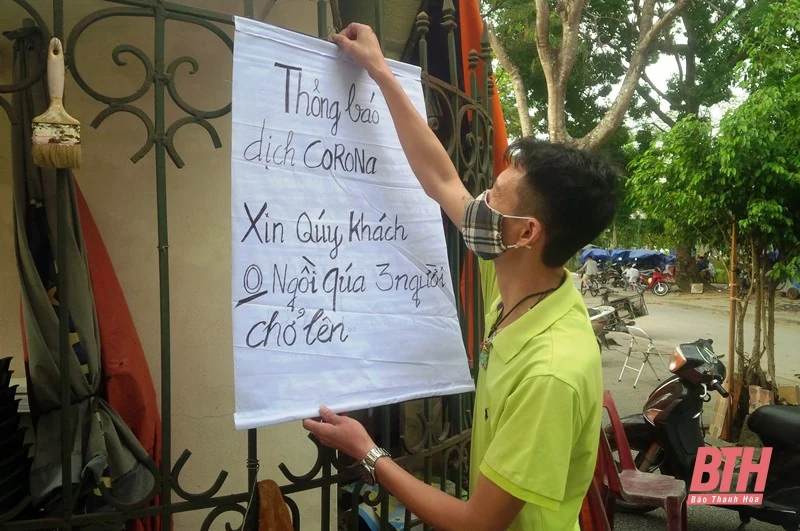 Thông báo
dịch CORONa
Xin Qúy Khách
0 Ngồi qúa 3 người
chở lên
BTH
Báo Thanh Hóa